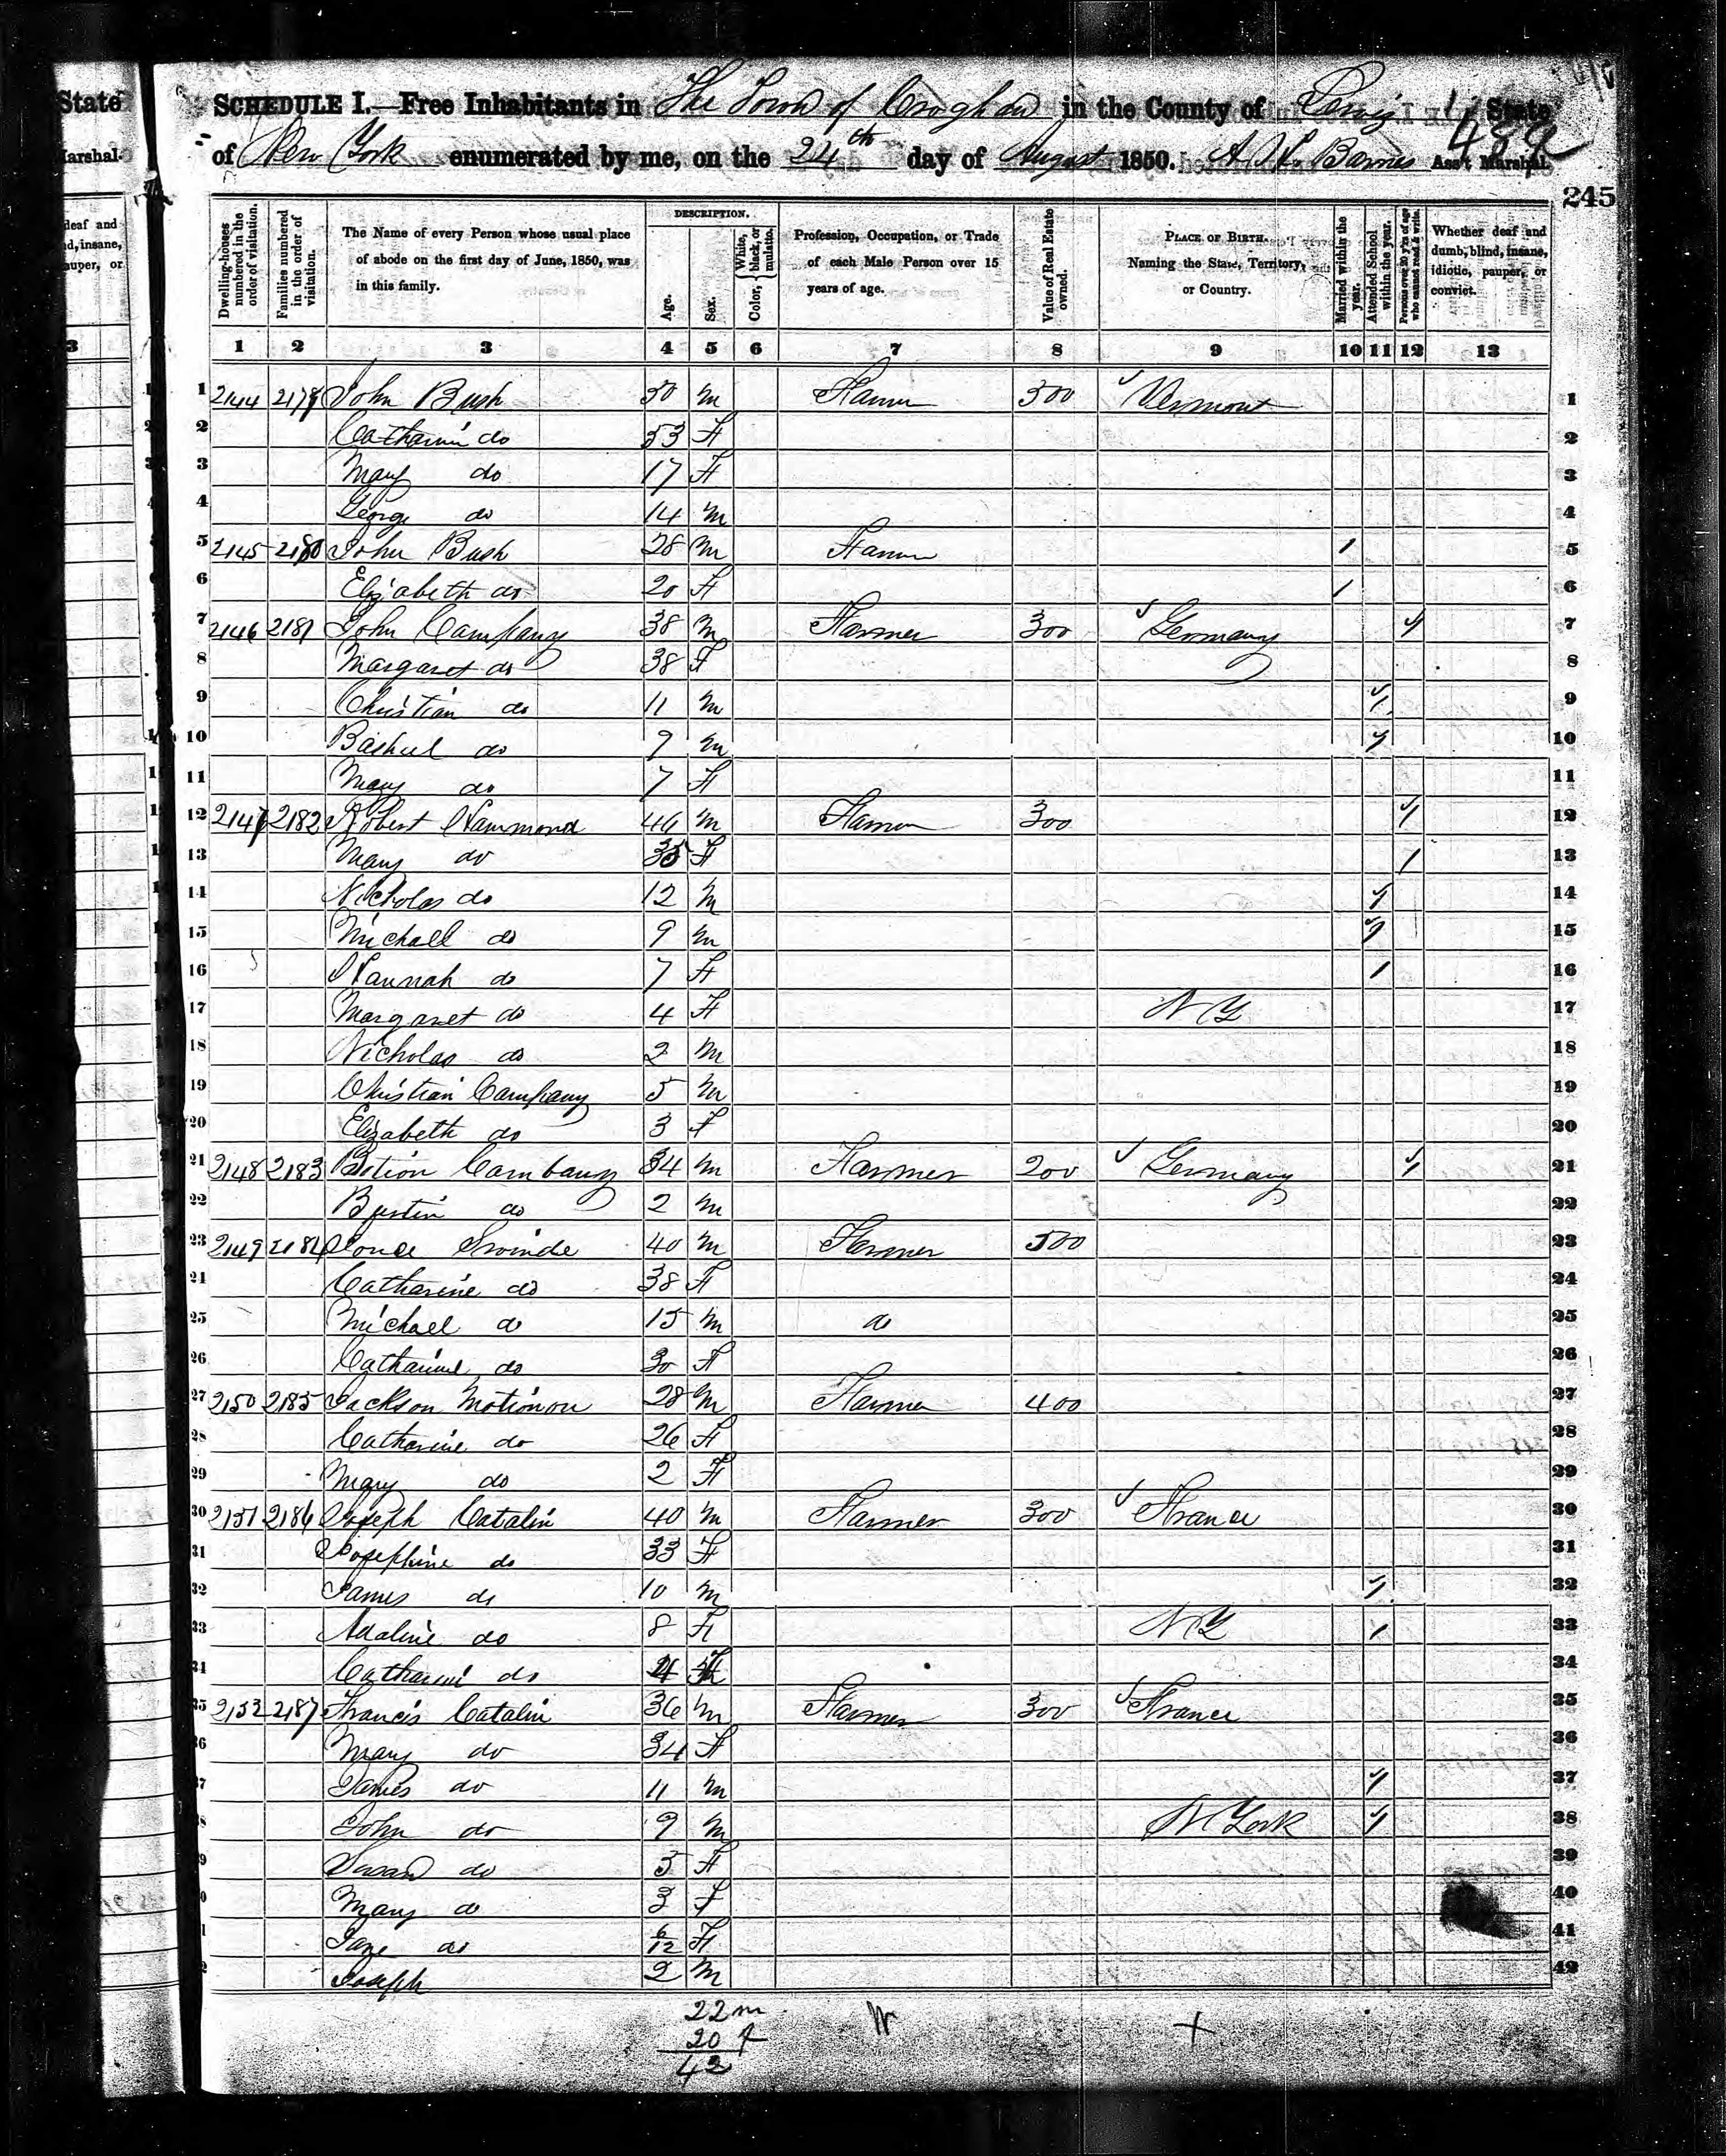 State
Marshal.
deaf and
d, insane,
auper, or
3
SCHEDULE I.—Free Inhabitants in The Town of Croghan in the County of Lewis State
489
of New York enumerated by me, on the 24th day of August 1850. Barnes Ass't Marshal.
245
Dwelling-houses numbered in the order of visitation.
Families numbered in the order of visitation.
The Name of every Person whose usual place of abode on the first day of June, 1850, was in this family.
DESCRIPTION.
Age.
Sex.
Color, White, black, or mulatto.
Profession, Occupation, or Trade of each Male Person over 15 years of age.
Value of Real Estate owned.
PLACE OF BIRTH. Naming the State, Territory, or Country.
Married within the year.
Attended School within the year.
Persons over 20 y'rs of age who cannot read & write.
Whether deaf and dumb, blind, insane, idiotic, pauper, or convict.
1 2 3 4 5 6 7 8 9 10 11 12 13
1 2144 2179 John Bush 50 M Farmer 300 Vermont 1
2 Catharine do 53 F 2
3 Mary do 17 F 3
4 George do 14 M 4
5 2145 2180 John Bush 28 M Farmer 1 5
6 Elizabeth do 20 F 1 6
7 2146 2181 John Campany 38 M Farmer 300 Germany 1 7
8 Margaret do 38 F 8
9 Christian do 11 M 1 9
10 do 9 M 1 10
11 Mary do 7 F 11
12 2147 2182 Robert Hammond 46 M Farmer 300 1 12
13 Mary do 35 F 1 13
14 Nicholas do 12 M 1 14
15 Michall do 9 M 1 15
16 Hannah do 7 F 1 16
17 Margaret do 4 F N Y 17
18 Nicholas do 2 M 18
19 Christian Campany 5 M 19
20 Elizabeth do 3 F 20
21 2148 2183 34 M Farmer 200 Germany 1 21
22 do 2 M 22
23 2149 2184 40 M Farmer 500 23
24 Catharine do 38 F 24
25 Michael do 15 M do 25
26 Catharine do 30 F 26
27 2150 2185 Jackson Motionou 28 M Farmer 400 27
28 Catharine do 26 F 28
29 Mary do 2 F 29
30 2151 2186 Joseph Catalin 40 M Farmer 300 France 30
31 Josephine do 33 F 31
32 James do 10 M 1 32
33 Adaline do 8 F N Y 1 33
34 Catharine do 4 F 34
35 2152 2187 Francis Catalin 36 M Farmer 300 France 35
36 Mary do 34 F 36
37 James do 11 M 1 37
38 John do 9 M N York 1 38
39 Susan do 5 F 39
40 Mary do 3 F 40
41 Jane do 6/12 F 41
42 Joseph 2 M 42
22 m
20 f
42